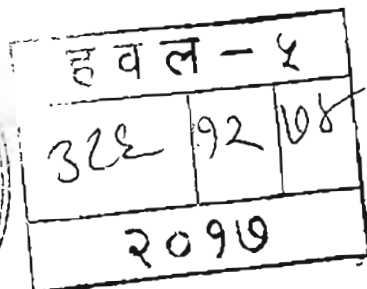 हवल - ५
३८६ १२ ७४
२०१७